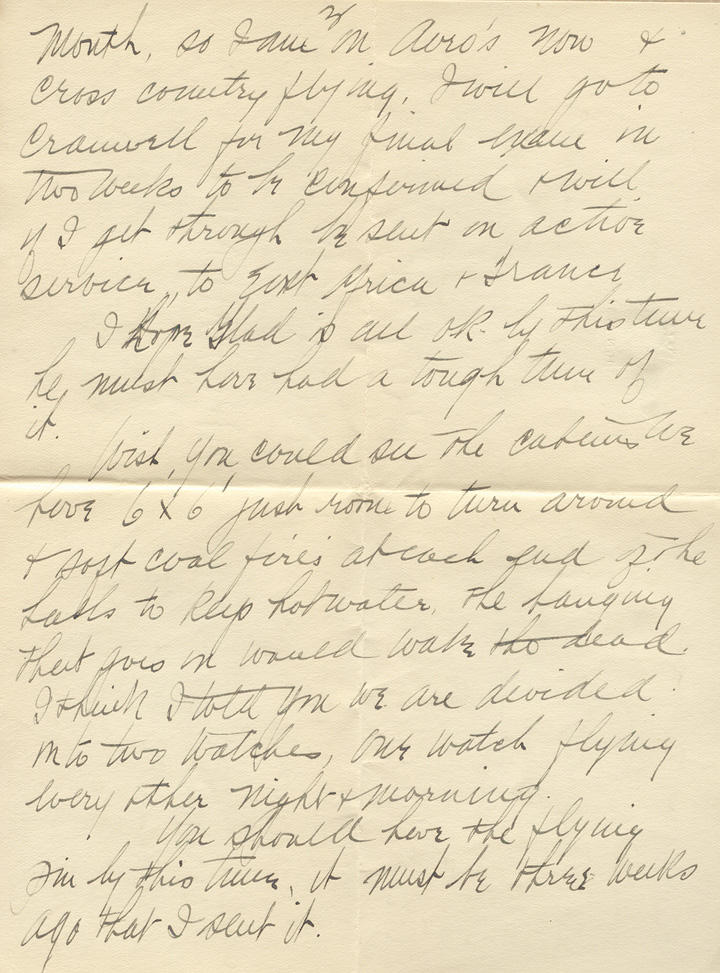 Month, so I am on Avro's now &
cross country flying. I will go to
Cranwell for my final exam in
two weeks to be confirmed & will
if I get through be sent on active
service, to East Africa & France
I Hope Glad is all ok by this time
he must have had a tough time of
it.
Wish you could see the cabins we
have 6 x 6' just room to turn around
& soft coal fires at each end of the
halls to keep hot water. The banging
that goes on would wake the dead.
I think I told you we are divided
into two watches, one watch flying
every other night & morning.
You should have the flying
pin by this time, it must be three weeks
ago that I sent it.